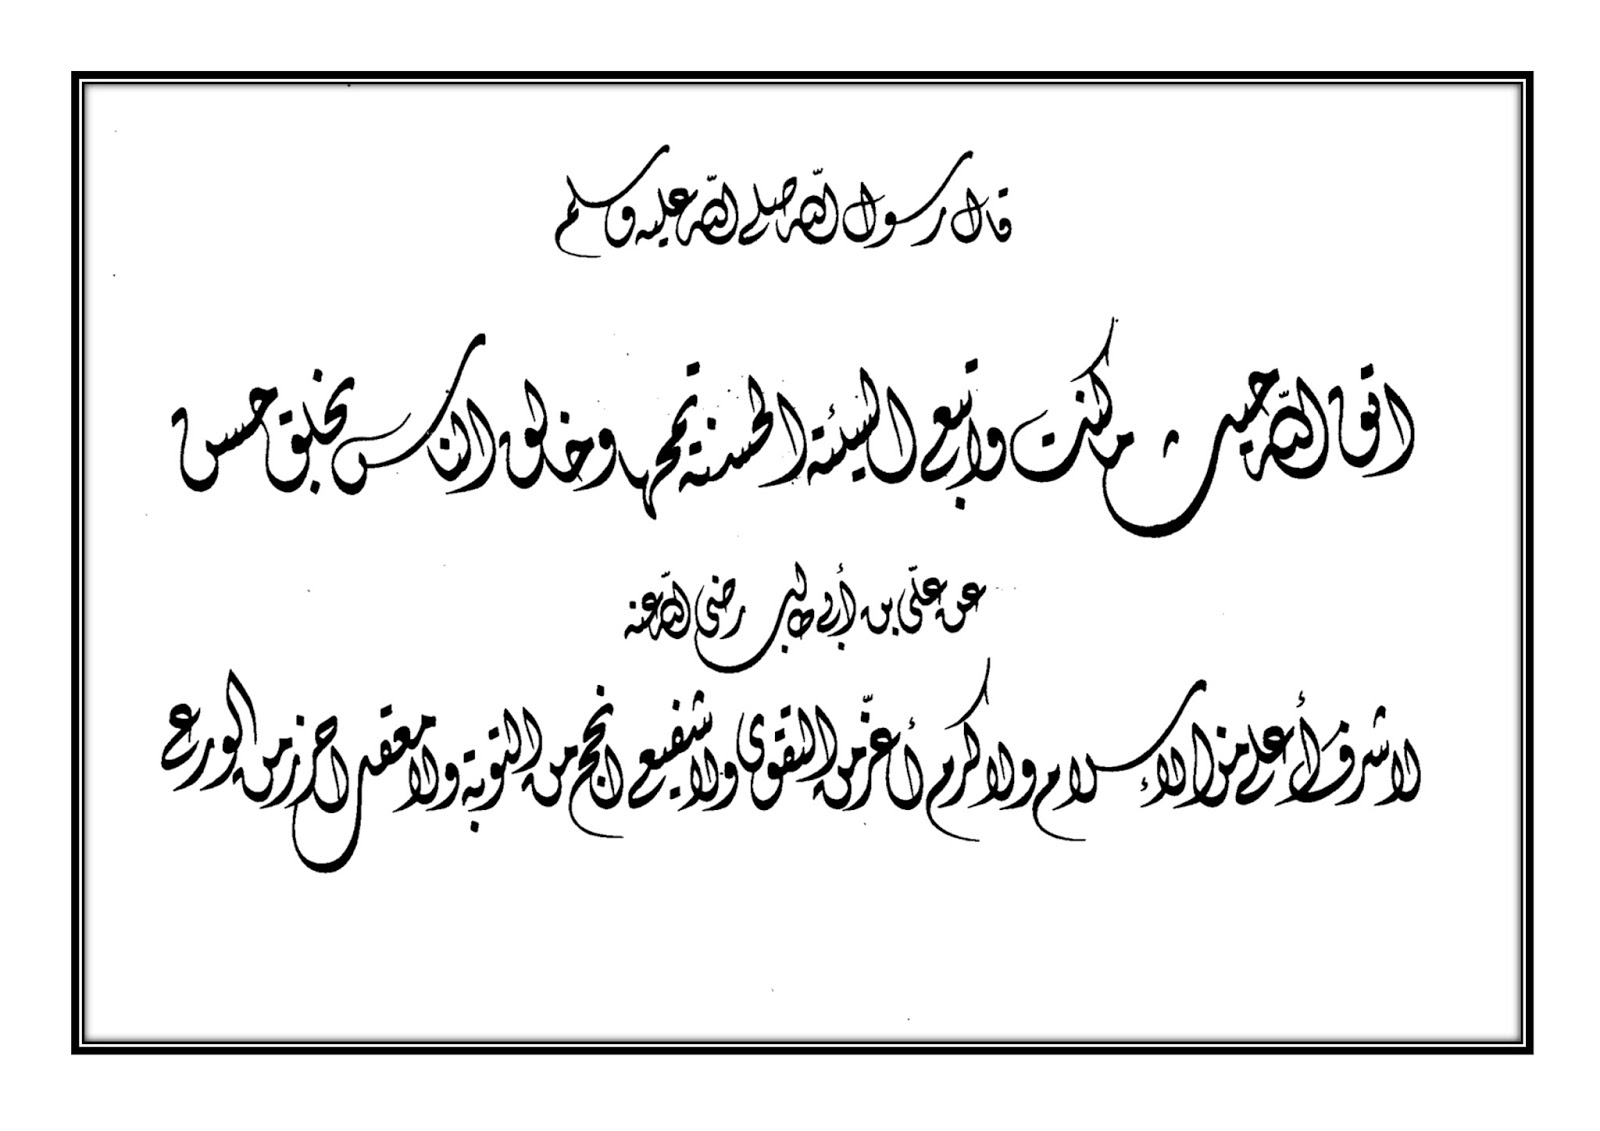 قال رسول الله صلى الله عليه وسلم
اتق الله حيث ما كنت واتبع السيئة الحسنة تمحها وخالق الناس بخلق حسن
عن علي بن أبي طالب رضي الله عنه
لا شرف أعلى من الإسلام ولا كرم أعزّ من التقوى ولا شفيع انجح من التوبة ولا معقل احرز من الورع